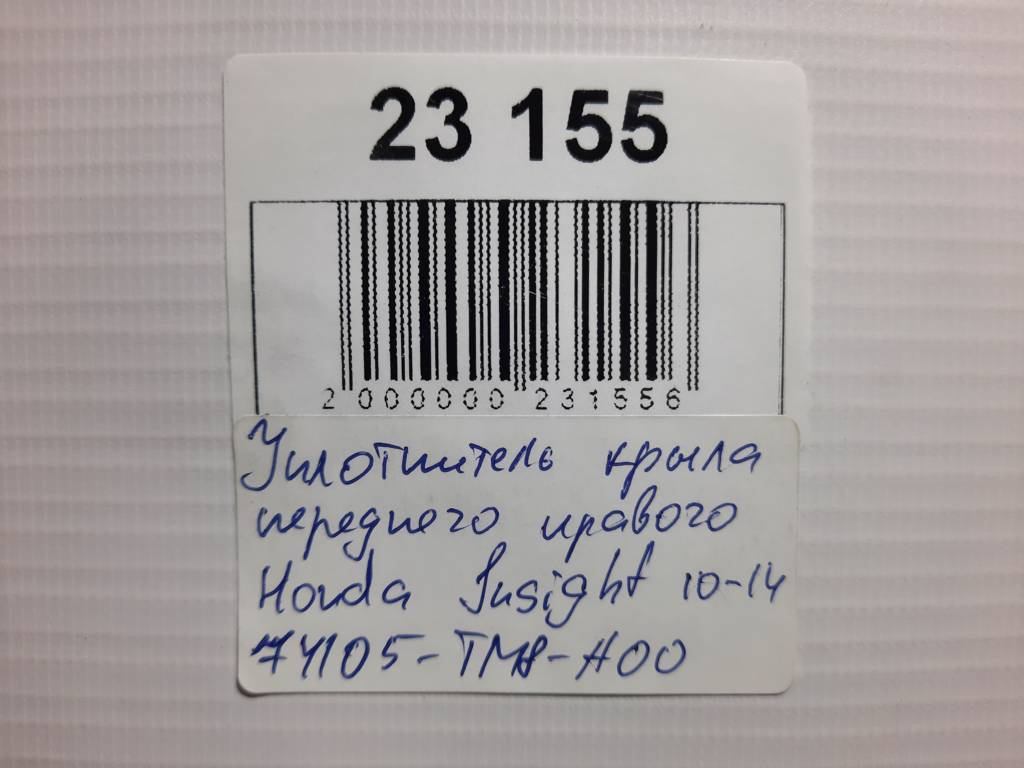 23 155
2 000000 231556
Уплотнитель крыла
переднего правого
Honda Insight 10-14
74105-TM8-A00